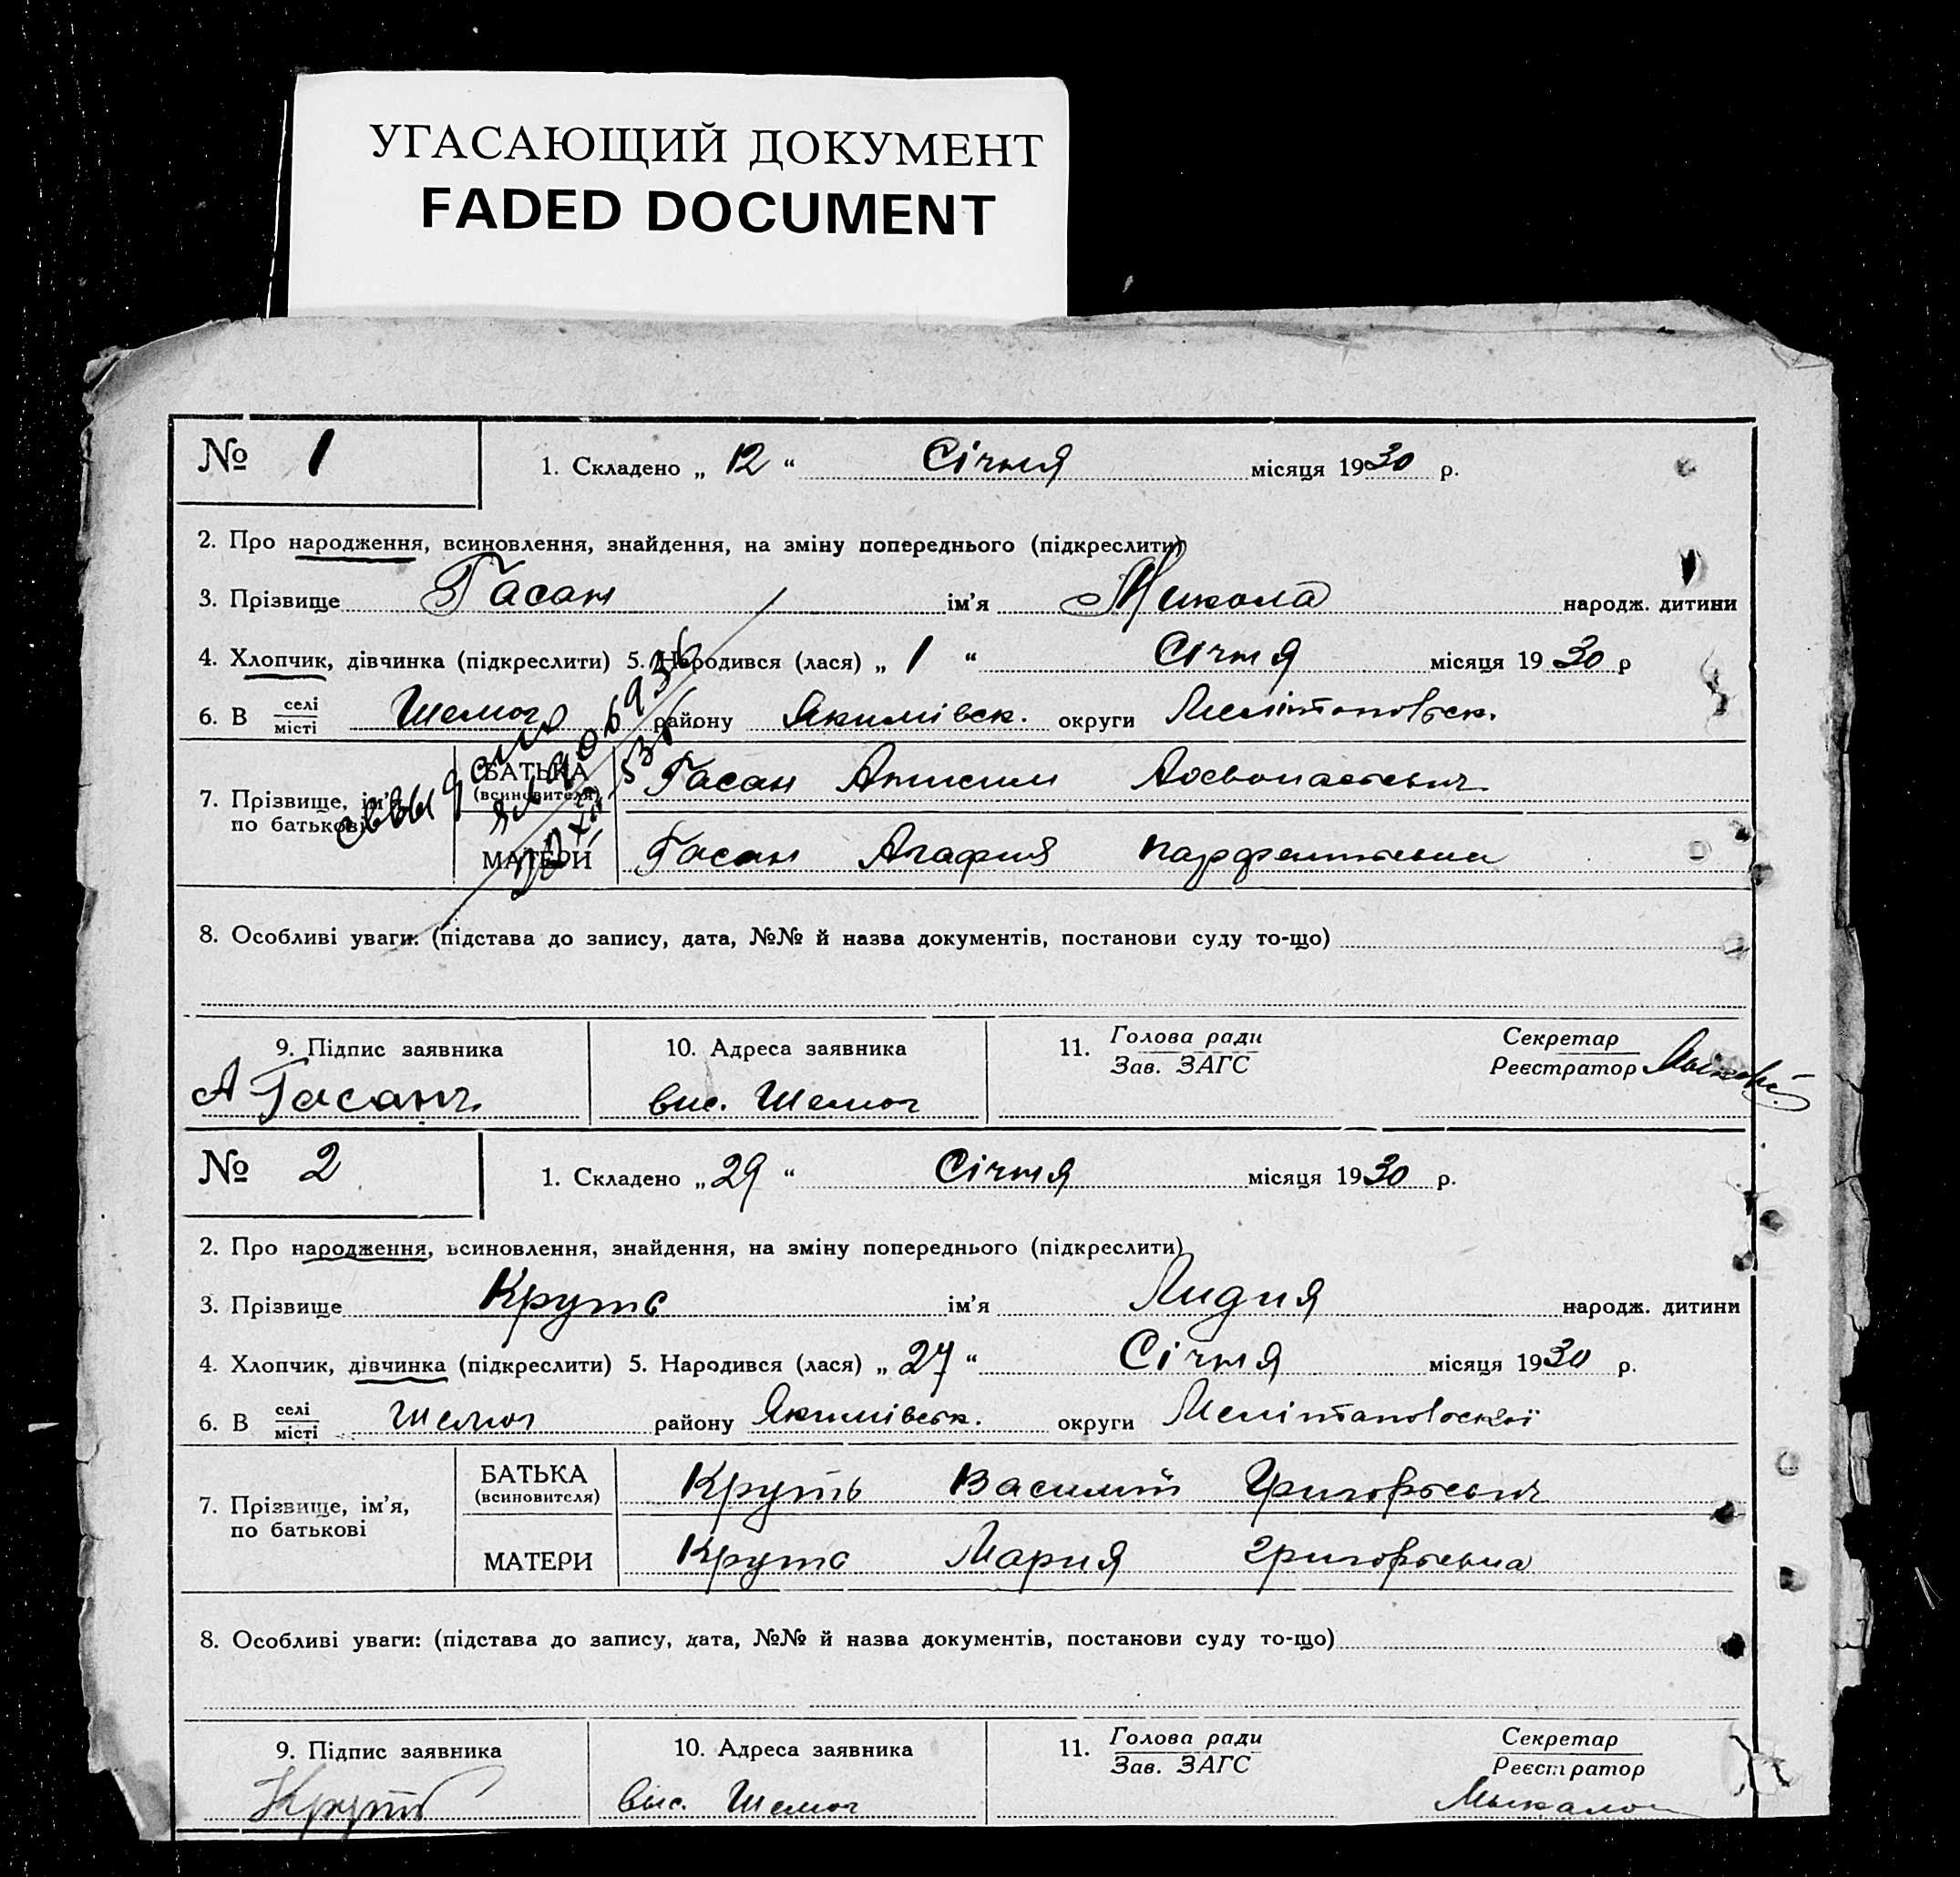 УГАСАЮЩИЙ ДОКУМЕНТ
FADED DOCUMENT
№ 1
1. Складено „ 12 “ Січня місяця 1930 р.
2. Про народження, всиновлення, знайдення, на зміну попереднього (підкреслити)
3. Прізвище Гасан ім’я Микола народж. дитини
4. Хлопчик, дівчинка (підкреслити) 5. Народився (лася) „ 1 “ Січня місяця 1930 р
6. В селі/місті району Якимівск. округи Мелітопольск.
7. Прізвище, ім’я, по батькові
БАТЬКА (всиновителя) Гасан Анисим
МАТЕРИ Гасан Агафия
8. Особливі уваги: (підстава до запису, дата, №№ й назва документів, постанови суду то-що)
9. Підпис заявника
10. Адреса заявника
11. Голова ради
Зав. ЗАГС
Секретар
Реєстратор
А Гасан
вис. Шемют
№ 2
1. Складено „ 29 “ Січня місяця 1930 р.
2. Про народження, всиновлення, знайдення, на зміну попереднього (підкреслити)
3. Прізвище Круть ім’я Лидия народж. дитини
4. Хлопчик, дівчинка (підкреслити) 5. Народився (лася) „ 27 “ Січня місяця 1930 р.
6. В селі/місті Шемют району Якимівськ. округи Мелітопольскої
7. Прізвище, ім’я, по батькові
БАТЬКА (всиновителя) Круть Василий Григорьевич
МАТЕРИ Круть Мария Григорьевна
8. Особливі уваги: (підстава до запису, дата, №№ й назва документів, постанови суду то-що)
9. Підпис заявника
10. Адреса заявника
11. Голова ради
Зав. ЗАГС
Секретар
Реєстратор
Круть
Выс. Шемют